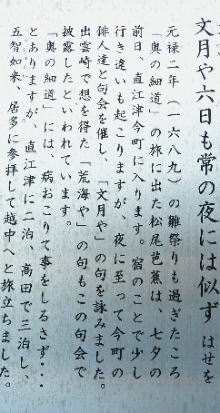 文月や六日も常の夜には似ず　はせを
元禄二年（一六八九）の雛祭りも過ぎたころ
「奥の細道」の旅に出た松尾芭蕉は、七夕の
前日、直江津今町に入ります。宿のことで少し
行き違いも起こりますが、夜に至って今町の
俳人達と句会を催し、「文月や」の句を詠みました。
出雲崎で想を得た「荒海や」の句もこの句会で
披露したといわれています。
「奥の細道」には、病おこりて事をしるさず・・・
とありますが、直江津に二泊、高田で三泊し、
五智如来、居多に参拝して越中へと旅立ちました。